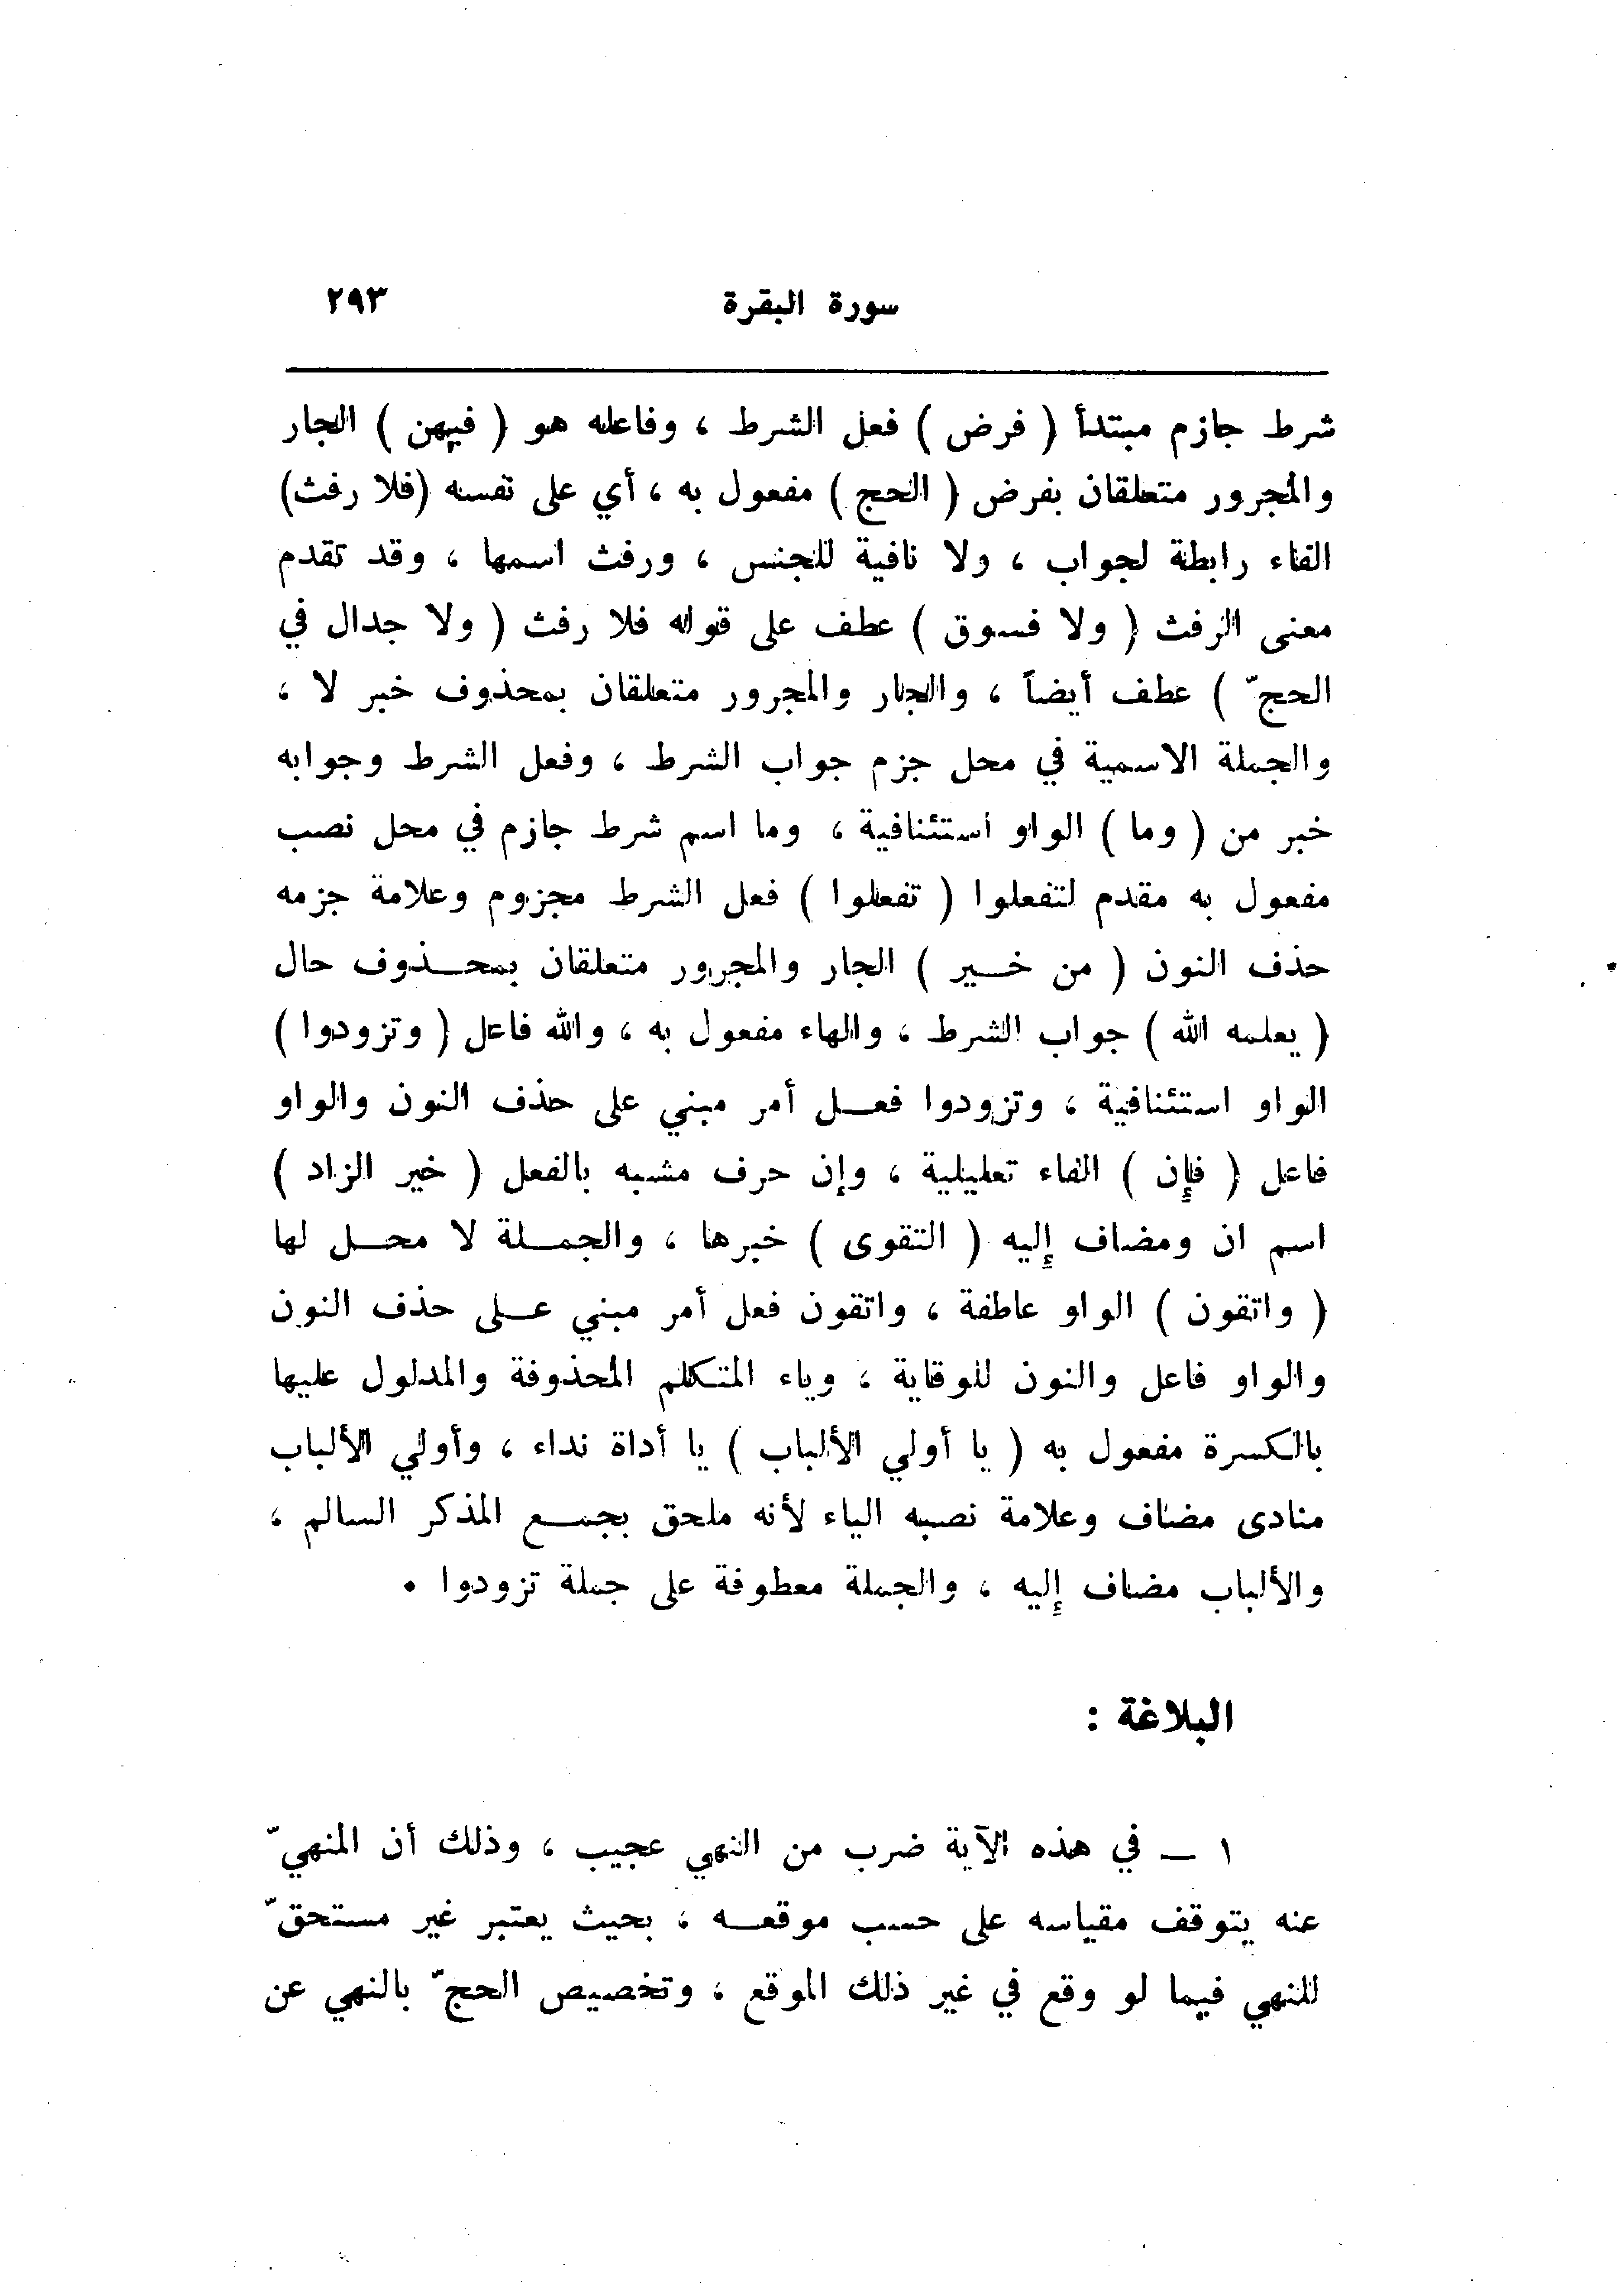 سورة البقرة ٢٩٣
شرط جازم مبتدأ ( فرض ) فعل الشرط ، وفاعله هو ( فيهن ) الجار
والمجرور متعلقان بفرض ( الحج ) مفعول به ، أي على نفسه (فلا رفث)
الفاء رابطة لجواب ، ولا نافية للجنس ، ورفث اسمها ، وقد تقدم
معنى الرفث ( ولا فسوق ) عطف على قوله فلا رفث ( ولا جدال في
الحجّ ) عطف أيضاً ، والجار والمجرور متعلقان بمحذوف خبر لا ،
والجملة الاسمية في محل جزم جواب الشرط ، وفعل الشرط وجوابه
خبر من ( وما ) الواو استئنافية ، وما اسم شرط جازم في محل نصب
مفعول به مقدم لتفعلوا ( تفعلوا ) فعل الشرط مجزوم وعلامة جزمه
حذف النون ( من خير ) الجار والمجرور متعلقان بمحذوف حال
( يعلمه الله ) جواب الشرط ، والهاء مفعول به ، والله فاعل ( وتزودوا )
الواو استئنافية ، وتزودوا فعل أمر مبني على حذف النون والواو
فاعل ( فإن ) الفاء تعليلية ، وإن حرف مشبه بالفعل ( خير الزاد )
اسم ان ومضاف إليه ( التقوى ) خبرها ، والجملة لا محل لها
( واتقون ) الواو عاطفة ، واتقون فعل أمر مبني على حذف النون
والواو فاعل والنون للوقاية ، وياء المتكلم المحذوفة والمدلول عليها
بالكسرة مفعول به ( يا أولي الألباب ) يا أداة نداء ، وأولي الألباب
منادى مضاف وعلامة نصبه الياء لأنه ملحق بجمع المذكر السالم ،
والألباب مضاف إليه ، والجملة معطوفة على جملة تزودوا .
البلاغة :
١ — في هذه الآية ضرب من النهي عجيب ، وذلك أن المنهيّ
عنه يتوقف مقياسه على حسب موقعه ، بحيث يعتبر غير مستحقّ
للنهي فيما لو وقع في غير ذلك الموقع ، وتخصيص الحجّ بالنهي عن